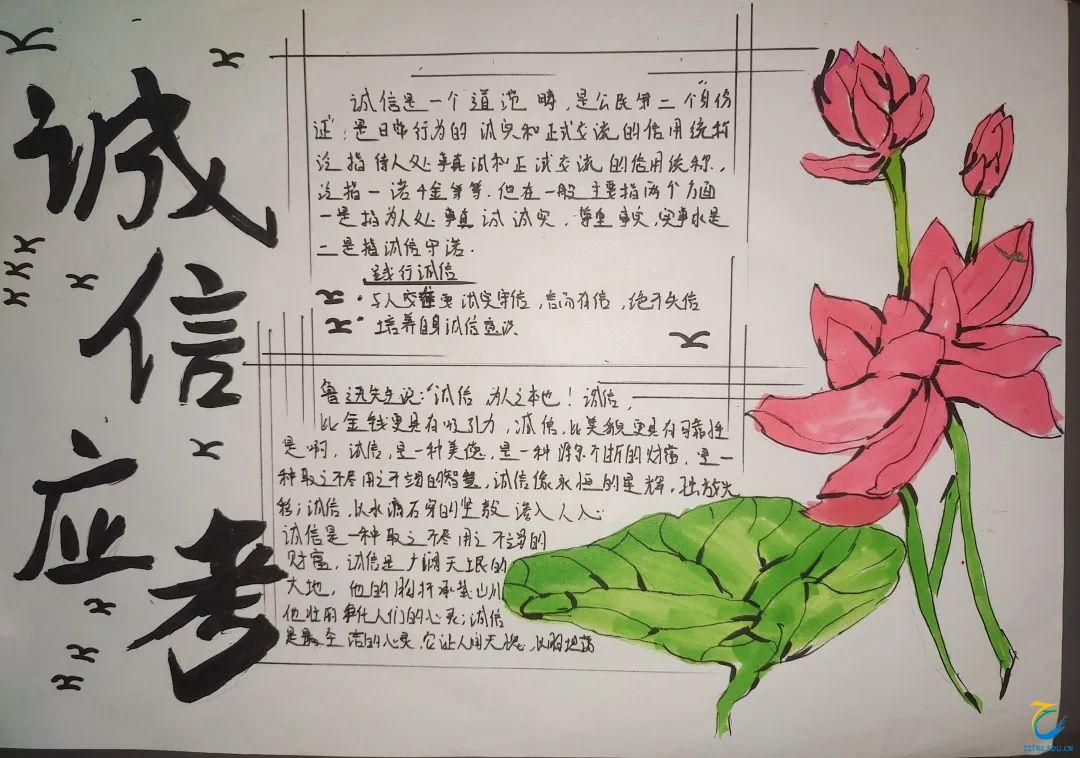 诚信应考
诚信是一个道范畴，是公民第二个"身份
证"，是日常行为的诚实和正式交流的信用统称
泛指待人处事真诚和正式交流的信用统称，
泛指一诺千金等等．但在一般主要指两个方面
一是指为人处事真诚诚实，尊重事实，实事求是
二是指诚信守诺．
践行诚信
·与人交往要诚实守信，言而有信，绝不失信
·培养自身诚信意识
鲁迅先生说："诚信，为人之本也！诚信，
比金钱更具有吸引力，诚信，比美貌更具有可靠性
是啊，诚信，是一种美德，是一种源源不断的财富，是一
种取之不尽用之不竭的智慧，诚信像永恒的星辉，
诚信，以水滴石穿的坚毅渗入人心
诚信是一种取之不尽用之不竭的
财富，诚信是广阔无垠的
大地，他的胸怀承载山川
他人们的心灵；诚信
是最的心灵，它让人
ZZTRC.EDU.CN